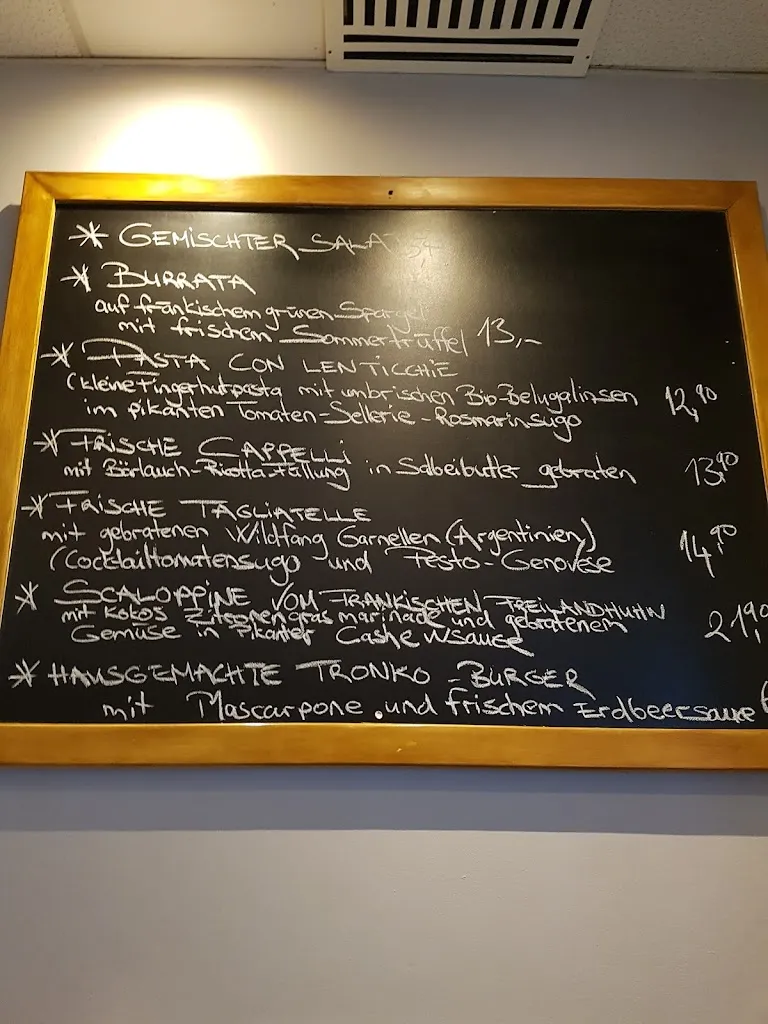 * GEMISCHTER SALAT
* BURRATA
auf fränkischem grünen Spargel
mit frischem Sommertrüffel 13,-
* PASTA CON LENTICCHIE
(kleine Fingerhutpasta mit umbrischen Bio-Belugalinsen 12,90
im pikanten Tomaten-Sellerie-Rosmarinsugo
* FRISCHE CAPPELLI
mit Bärlauch-Ricotta-Füllung in Salbeibutter gebraten 13,90
* FRISCHE TAGLIATELLE
mit gebratenen Wildfang Garnellen (Argentinien) 14,90
(Cocktailtomatensugo und Pesto-Genovese
* SCALOPPINE VOM FRÄNKISCHEN FREILANDHUHN
mit Kokos Zitronengras marinade und gebratenem 21,90
Gemüse in Pikanter Cashewsauce
* HAUSGEMACHTE TRONKO-BURGER
mit Mascarpone und frischem Erdbeersauce